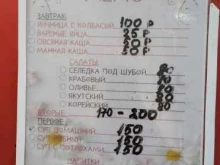 ЗАВТРАК
ЯИЧНИЦА С КОЛБАСОЙ 100 Р
ВАРЕНЫЕ ЯЙЦА 25 Р
ОВСЯНАЯ КАША 50 Р
МАННАЯ КАША 50 Р
САЛАТЫ
СЕЛЕДКА ПОД ШУБОЙ 80
КРАБОВЫЙ 80
ОЛИВЬЕ 80
ЯКУТСКИЙ 80
КОРЕЙСКИЙ 80
170-200
ПЕРВЫЕ
СУП ДОМАШНИЙ 150
СУП 150
СУП 150